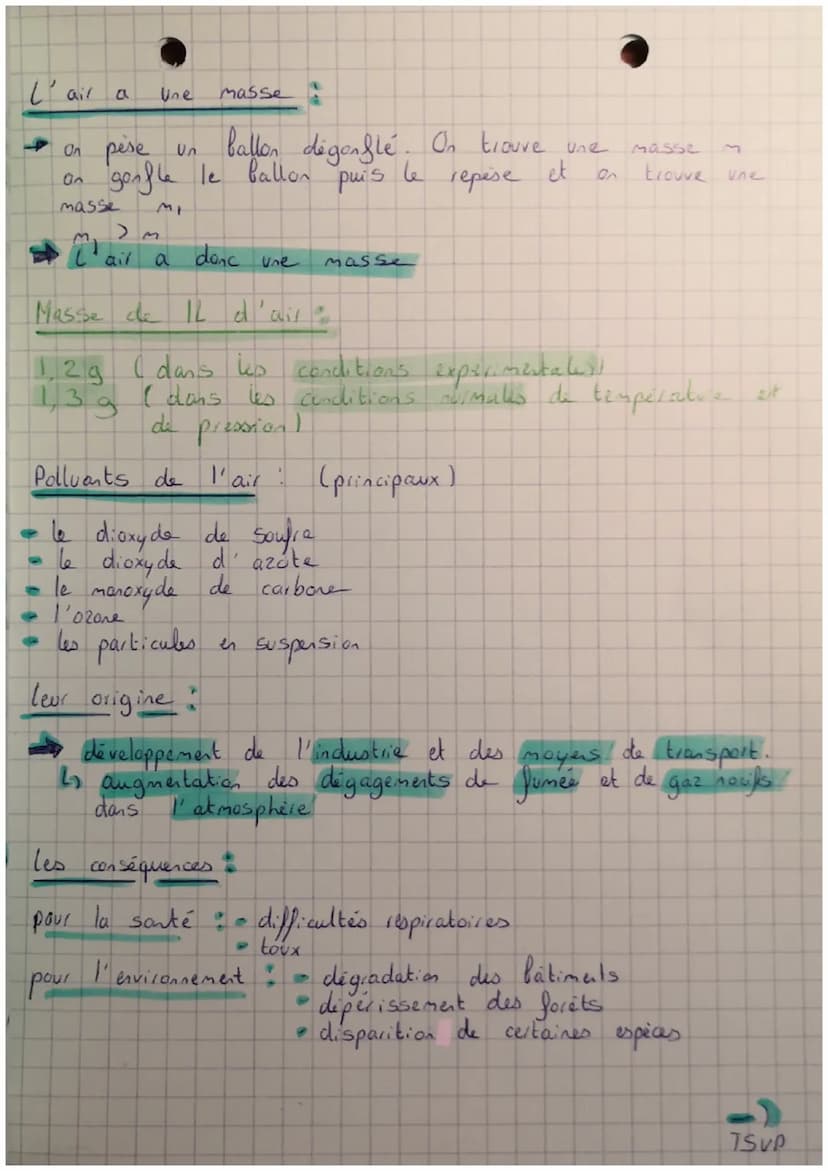 L'air a une masse :
→ on pèse un ballon dégonflé. On trouve une masse m
on gonfle le ballon puis le repèse et on trouve une
masse m₁
m₁ > m
➡ L'air a donc une masse
Masse de 1L d'air :
1,2g (dans les conditions expérimentales)
1,3g (dans les conditions normales de température et
de pression)
Polluants de l'air : (principaux)
- le dioxyde de soufre
- le dioxyde d'azote
- le monoxyde de carbone
- l'ozone
- les particules en suspension
leur origine :
➡ développement de l'industrie et des moyens de transport.
↳ augmentation des dégagements de fumée et de gaz nocifs
dans l'atmosphère
les conséquences :
pour la santé : - difficultés respiratoires
- toux
pour l'environnement : - dégradation des bâtiments
- dépérissement des forêts
- disparition de certaines espèces
TSVP